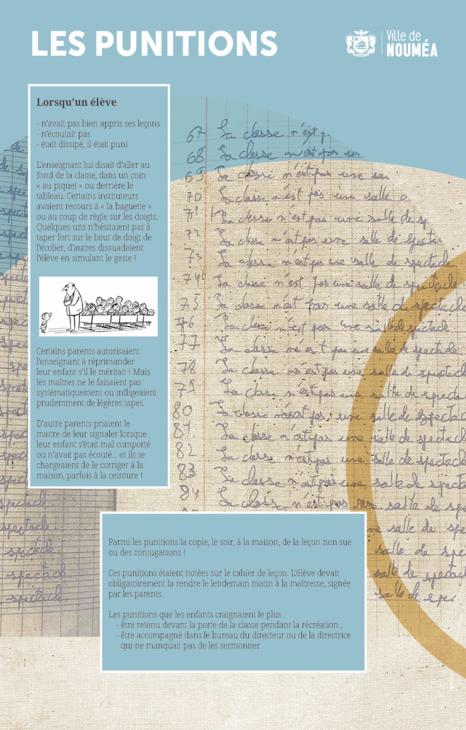 LES PUNITIONS
Ville de
NOUMÉA
Lorsqu'un élève
- n'avait pas bien appris ses leçons
- n'écoutait pas
- était dissipé, il était puni
L'enseignant lui disait d'aller au
fond de la classe, dans un coin
« au piquet » ou derrière le
tableau. Certains instituteurs
avaient recours à « la baguette »
ou au coup de règle sur les doigts.
Quelques-uns n'hésitaient pas à
taper fort sur le bout de doigt de
l'écolier, d'autres dissuadaient
l'élève en simulant le geste !
Certains parents autorisaient
l'enseignant à réprimander
leur enfant s'il le méritait ! Mais
les maîtres ne le faisaient pas
systématiquement ou infligeaient
prudemment de légères tapes.
D'autre parents priaient le
maitre de leur signaler lorsque
leur enfant s'était mal comporté
ou n'avait pas écouté... et ils se
chargeaient de le corriger à la
maison, parfois à la ceinture !
67 La classe n'est p
68 La classe n'est pas un
69 La classe n'est pas une sa
70 La classe n'est pas une salle
71 La classe n'est pas une salle de sp
72 La classe n'est pas une salle de specta
73 La classe n'est pas une salle de spectacle
74 La classe n'est pas une salle de spectacle
75 La classe n'est pas une salle de spectacle
76 La classe n'est pas une salle de spectacle
77 La classe n'est pas une salle de spectacle
78 La classe n'est pas une salle de spectacle
79 La classe n'est pas une salle de spectacle
80 La classe n'est pas une salle de spectacle
81 La classe n'est pas une salle de spectacle
82 La classe n'est pas une salle de spectacle
83 La classe n'est pas une salle de spectacle
84 La classe n'est pas une salle de spectacle
Parmi les punitions la copie, le soir, à la maison, de la leçon non sue
ou des conjugaisons !
Ces punitions étaient notées sur le cahier de leçon. L'élève devait
obligatoirement la rendre le lendemain matin à la maîtresse, signée
par les parents.
Les punitions que les enfants craignaient le plus :
- être retenu devant la porte de la classe pendant la récréation ;
- être accompagné dans le bureau du directeur ou de la directrice
qui ne manquait pas de les sermonner